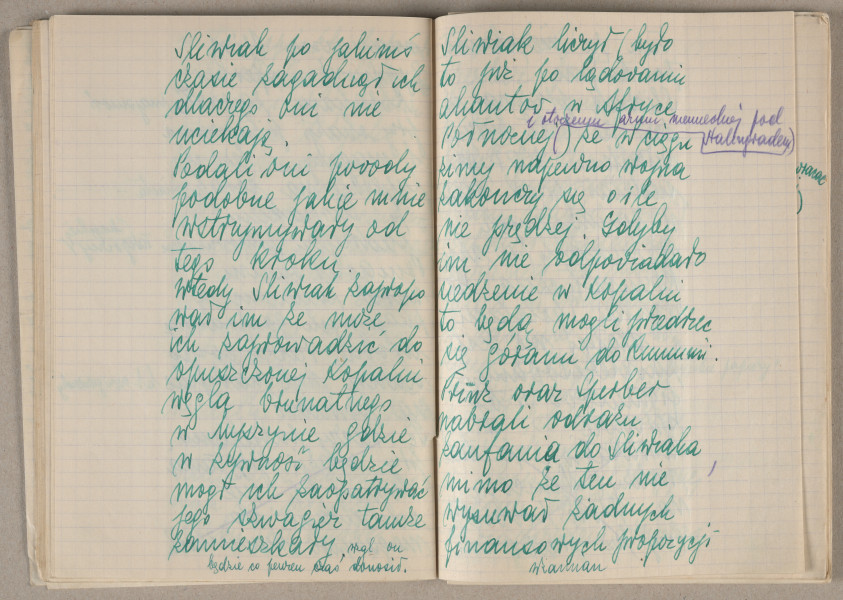 Śliwiak po jakimś
czasie zagadnął ich
dlaczego oni nie
uciekają.
Podali oni powody
podobne jakie mnie
wstrzymywały od
tego kroku
wtedy Śliwiak zapropo
wał im że może
ich zaprowadzić do
opuszczonej kopalni
węgla brunatnego
w Myszynie gdzie
w żywność będzie
mógł ich zaopatrywać
jego szwagier tamże
zamieszkały, wzgl. on
będzie co pewien czas donosił.
Śliwiak liczył (było
to już po lądowaniu
aliantów w Afryce
i otoczeniu armii niemieckiej pod
Północnej () że w ciągu Stalingradem)
zimy napewno wojna
zakończy się o ile
nie prędzej. Gdyby
im nie odpowiadało
siedzenie w kopalni
to będą mogli przedrzeć
się górami do Rumunii.
Prinz oraz Gerber
nabrali odrazu
zaufania do Śliwiaka
mimo że ten nie
wysuwał żadnych
finansowych propozycji